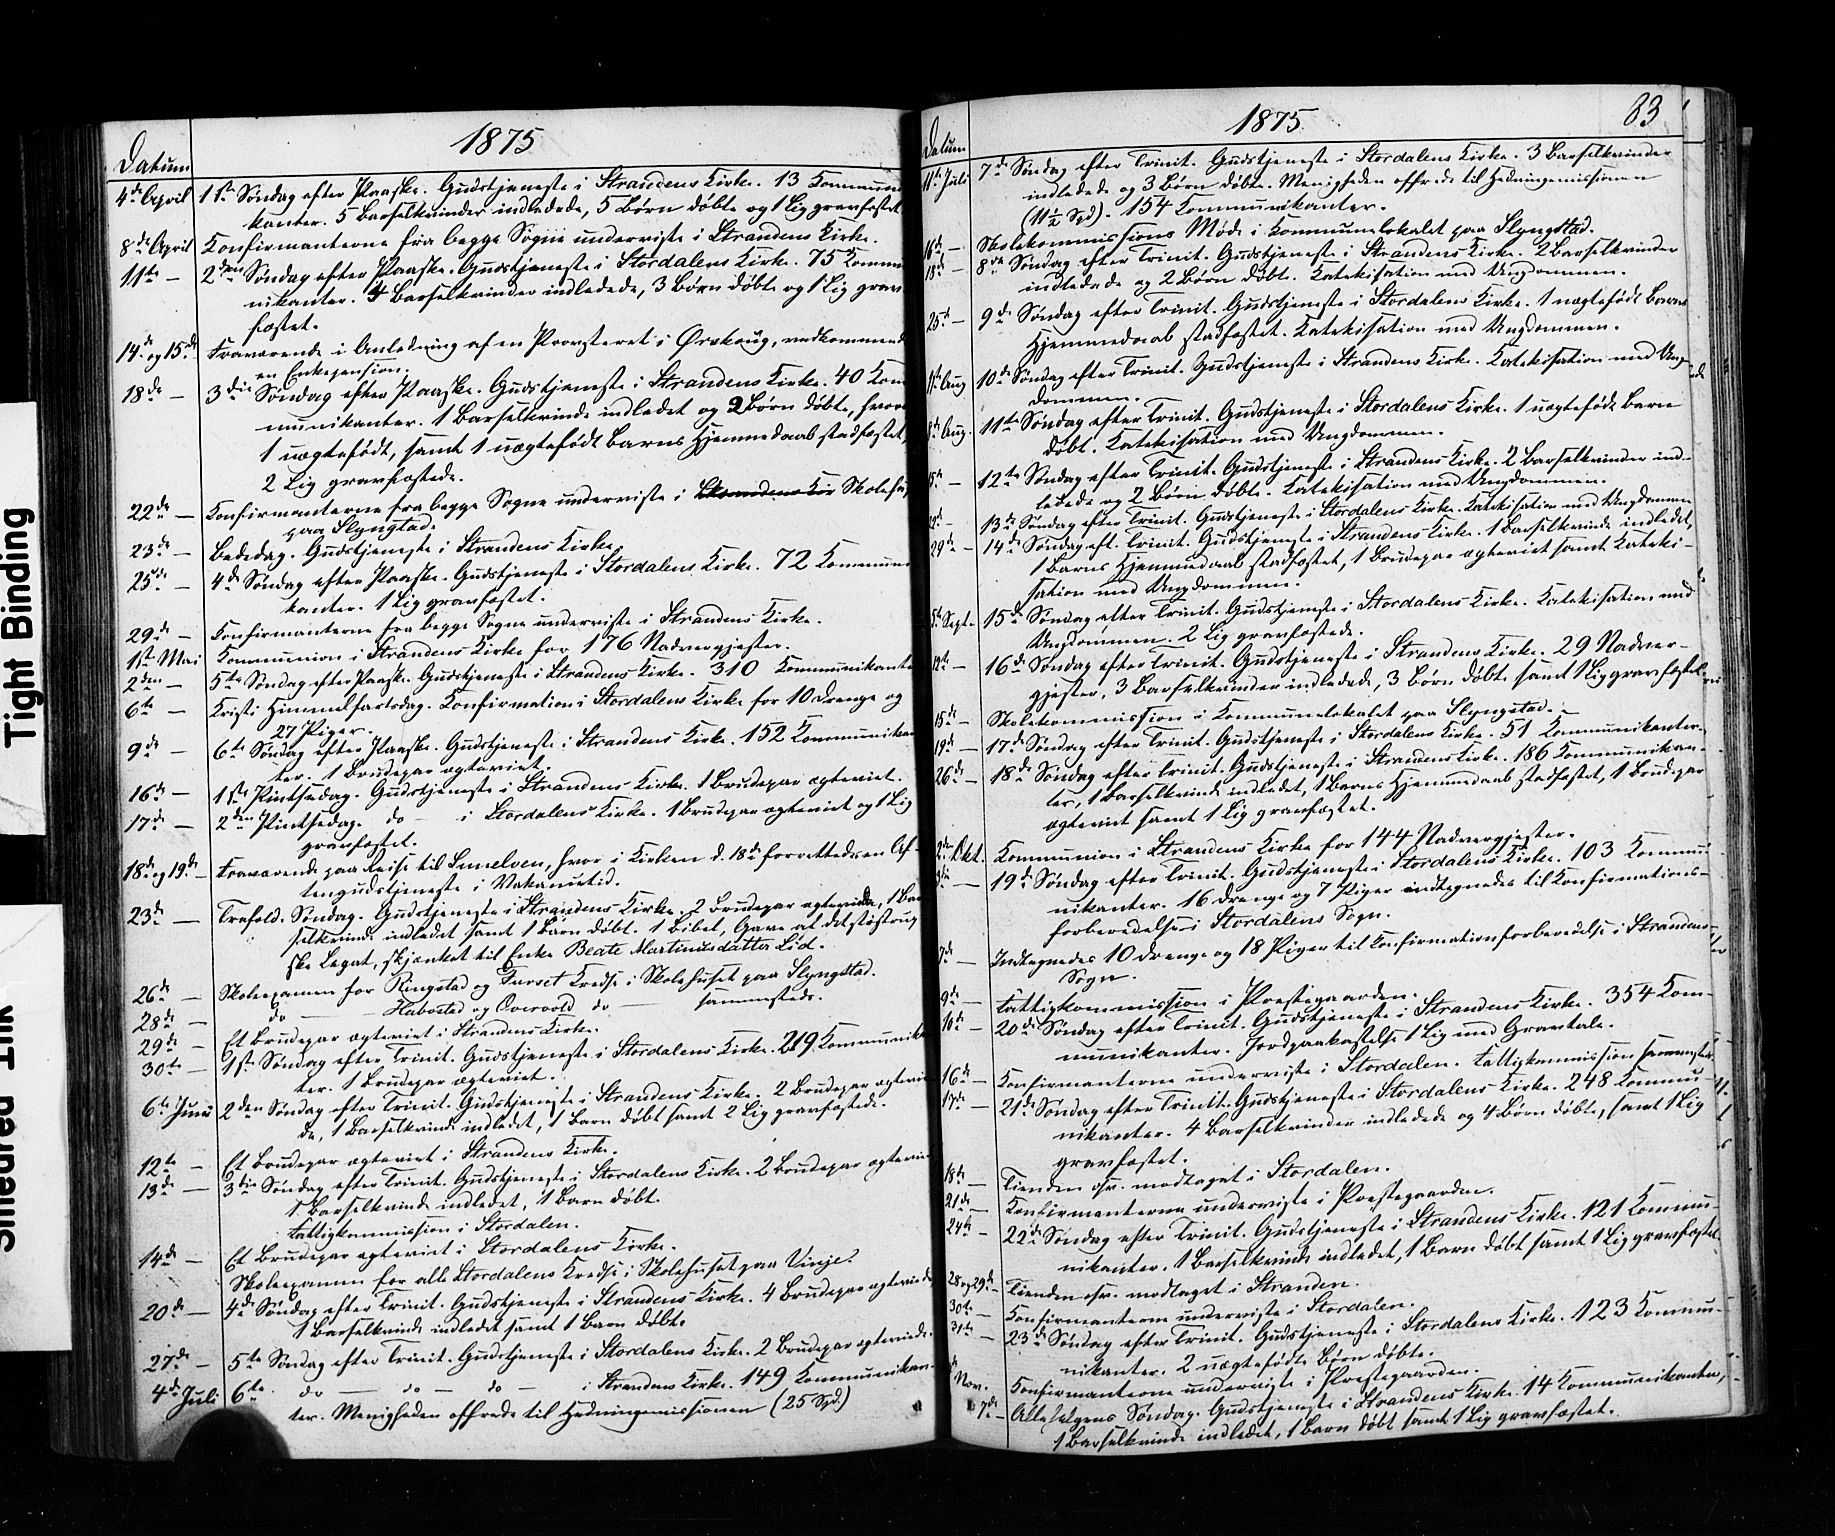 Tight Binding
Smeared Ink
1875
Datum
4de April 1ste Søndag efter Paaske. Gudstjeneste i Strandens Kirke. 13 Kommuni
kanter. 5 Barselkvinder indledede, 5 Børn døbte og 1 Lig gravfæstet
8de April Konfirmanterne fra begge Sogne underviste i Strandens Kirke.
11te — 2den Søndag efter Paaske. Gudstjeneste i Stordalens Kirke. 75 Kommu
nikanter. 4 Barselkvinder indledede, 3 Børn døbte og 1 Lig grav
fæstet.
14de og 15de Fraværende i Anledning af en Provsteret i Ørskoug, vedkommende
en Enkepension.
18de — 3die Søndag efter Paaske. Gudstjeneste i Strandens Kirke. 40 Kom
munikanter. 1 Barselkvinde indledet og 2 Børn døbte, hvoraf
1 uægtefødt, samt 1 uægtefødt Barns Hjemmedaab stadfæstet,
2 Lig gravfæstede.
22de — Konfirmanterne fra begge Sogne underviste i Strandens Kir Skolehus
paa Slyngstad.
23de — Bededag. Gudstjeneste i Strandens Kirke.
25de — 4de Søndag efter Paaske. Gudstjeneste i Stordalens Kirke. 72 Kommuni
kanter. 1 Lig gravfæstet.
29de — Konfirmanterne fra begge Sogne underviste i Strandens Kirke.
1ste Mai Kommunion i Strandens Kirke for 176 Nadvergjester.
2den — 5te Søndag efter Paaske. Gudstjeneste i Strandens Kirke. 310 Kommunikante
6te — Kristi Himmelfartsdag. Konfirmation i Stordalens Kirke for 10 Drenge og
27 Piger.
9de — 6te Søndag efter Paaske. Gudstjeneste i Strandens Kirke. 152 Kommunikan
ter. 1 Brudepar ægteviet.
16de — 1ste Pintsedag. Gudstjeneste i Strandens Kirke. 1 Brudepar ægteviet.
17de — 2den Pintsedag. do — i Stordalens Kirke. 1 Brudepar ægteviet og 1 Lig
gravfæstet.
18de og 19de — Fraværende paa Reise til Sunelven, hvor i Kirken d. 18de forrettedes en Af-
tengudstjeneste i Vakancetid.
23de — Trefold. Søndag. Gudstjeneste i Strandens Kirke. 2 Brudepar ægteviede, 1 Bar
selkvinde indledet samt 1 Barn døbt. 1 Bibel, Gave af det
ske Legat, skjænket til Enke Beate Martinusdatter Lid.
26de — Skoleexamen for Ringstad og Furset Kredse i Skolehuset paa Slyngstad.
28de — do — Habostad og Overvold do — sammesteds.
29de — Et Brudepar ægteviet i Strandens Kirke.
30te — 1ste Søndag efter Trinit. Gudstjeneste i Stordalens Kirke. 219 Kommunika
ter. 1 Brudepar ægteviet.
6te Juni 2den Søndag efter Trinit. Gudstjeneste i Strandens Kirke. 2 Brudepar ægtevie
de, 1 Barselkvinde indledet, 1 Barn døbt samt 2 Lig gravfæstede.
12te — Et Brudepar ægteviet i Strandens Kirke.
13de — 3die Søndag efter Trinit. Gudstjeneste i Stordalens Kirke. 2 Brudepar ægtevie
1 Barselkvinde indledet, 1 Barn døbt.
Fattigkommission i Stordalen.
14de — Et Brudepar ægteviet i Stordalens Kirke.
Skoleexamen for alle Stordalens Kredse i Skolehuset paa Vinje.
20de — 4de Søndag efter Trinit. Gudstjeneste i Strandens Kirke. 4 Brudepar ægteviede
1 Barselkvinde indledet samt 1 Barn døbt.
27de — 5te Søndag efter Trinit. Gudstjeneste i Stordalens Kirke. 2 Brudepar ægteviede.
4de Juli 6te do — do — do — i Strandens Kirke. 149 Kommunikan-
ter. Menigheden offrede til Hedningemissionen (25 Spd.)
1875.
83
Datum
11te Juli 7de Søndag efter Trinit. Gudstjeneste i Stordalens Kirke. 3 Barselkvinder
indledede og 3 Børn døbte. Menigheden offrede til Hedningemissionen
(11½ Spd). 154 Kommunikanter.
16de — Skolekommissions Møde i Kommunelokalet paa Slyngstad.
18de — 8de Søndag efter Trinit. Gudstjeneste i Strandens Kirke. 2 Barselkvinder
indledede og 2 Børn døbt. Katekisation med Ungdommen.
25de — 9de Søndag efter Trinit. Gudstjeneste i Stordalens Kirke. 1 uægtefødt Barns
Hjemmedaab stadfæstet. Katekisation med Ungdommen.
1ste Aug 10de Søndag efter Trinit. Gudstjeneste i Strandens Kirke. Katekisation med Ung-
dommen.
8de Aug. 11te Søndag efter Trinit. Gudstjeneste i Stordalens Kirke. 1 uægtefødt Barn
døbt. Katekisation med Ungdommen.
15de — 12te Søndag efter Trinit. Gudstjeneste i Strandens Kirke. 2 Barselkvinder ind-
ledede og 2 Børn døbte. Katekisation med Ungdommen.
22de — 13de Søndag efter Trinit. Gudstjeneste i Stordalens Kirke. Katekisation med Ungdommen
29de — 14de Søndag eft. Trinit. Gudstjeneste i Strandens Kirke. 1 Barselkvinde indledet,
1 Barns Hjemmedaab stadfæstet, 1 Brudepar ægteviet samt Kateki-
sation med Ungdommen.
5te Sept. 15de Søndag efter Trinit. Gudstjeneste i Stordalens Kirke. Katekisation med
Ungdommen. 2 Lig gravfæstede.
12te — 16de Søndag efter Trinit. Gudstjeneste i Strandens Kirke. 29 Nadver-
gjester, 3 Barselkvinder indledede, 3 Børn døbte samt 1 Lig gravfæstet.
15de — Skolekommission i Kommunelokalet paa Slyngstad.
19de — 17de Søndag efter Trinit. Gudstjeneste i Stordalens Kirke. 51 Kommunikanter.
26de — 18de Søndag efter Trinit. Gudstjeneste i Strandens Kirke. 186 Kommunikan-
ter, 1 Barselkvinde indledet, 1 Barns Hjemmedaab stadfæstet, 1 Brudepar
ægteviet samt 1 Lig gravfæstet.
2den Okt. Kommunion i Strandens Kirke for 144 Nadvergjester.
3die — 19de Søndag efter Trinit. Gudstjeneste i Stordalens Kirke. 103 Kommu
nikanter. 16 Drenge og 7 Piger indtegnedes til Konfirmations-
forberedelse i Stordalens Sogn.
7de — Indtegnedes 10 Drenge og 18 Piger til Konfirmationforberedelse i Strandens
Sogn.
9de — Fattigkommission i Præstegaarden.
10de — 20de Søndag efter Trinit. Gudstjeneste i Strandens Kirke. 354 Kom-
munikanter. Jordpaakastelse 1 Lig med Gravtale.
16de — Konfirmanterne underviste i Stordalen. Fattigkommission sammesteds.
17de — 21de Søndag efter Trinit. Gudstjeneste i Stordalens Kirke. 248 Kommu-
nikanter. 4 Barselkvinder indledede og 4 Børn døbte, samt 1 Lig
gravfæstet.
18de — Tienden osv. modtaget i Stordalen.
21de — Konfirmanterne underviste i Præstegaarden.
24de — 22de Søndag efter Trinit. Gudstjeneste i Strandens Kirke. 121 Kommu-
nikanter. 1 Barselkvinde indledet, 1 Barn døbt samt 1 Lig gravfæstet.
28 og 29de — Tienden osv. modtaget i Stranden.
30te — Konfirmanterne underviste i Stordalen.
31te — 23de Søndag efter Trinit. Gudstjeneste i Stordalens Kirke. 123 Kommu-
nikanter. 2 uægtefødte Børn døbte.
Nov. Konfirmanterne underviste i Præstegaarden.
7de — Allehelgens Søndag. Gudstjeneste i Strandens Kirke. 14 Kommunikanter,
1 Barselkvinde indledet, 1 Barn døbt samt 1 Lig gravfæstet.